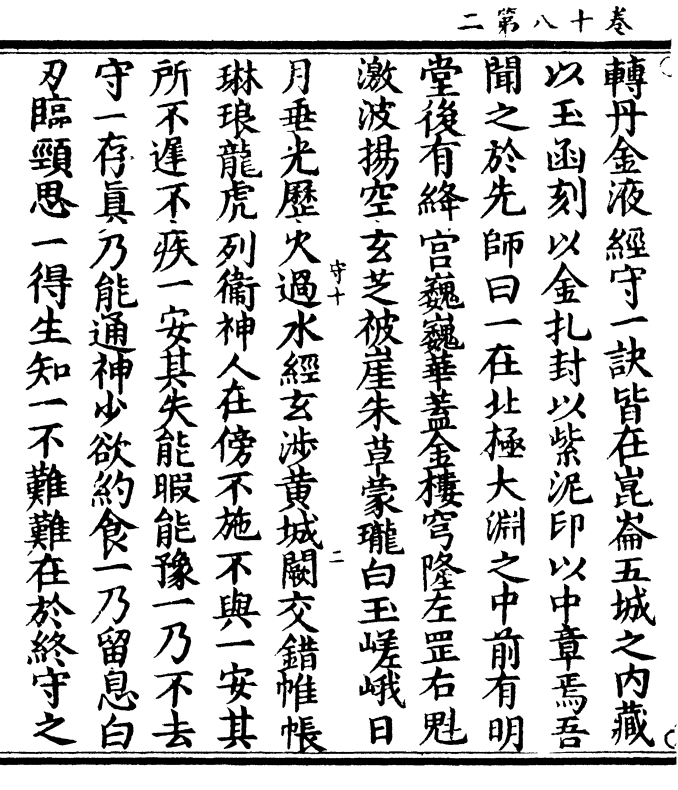 卷十八第二
轉丹金液經守一訣皆在崑崙五城之內藏
以玉函刻以金扎封以紫泥印以中章焉吾
聞之於先師曰一在北極大淵之中前有明
堂後有絳宮巍巍華蓋金樓穹隆左罡右魁
激波揚空玄芝被崖朱草蒙瓏白玉嵯峨日
守十
二
月垂光歷火過水經玄涉黃城闕交錯帷帳
琳琅龍虎列衞神人在傍不施不與一安其
所不遲不疾一安其失能暇能豫一乃不去
守一存眞乃能通神少欲約食一乃留息白
刃臨頸思一得生知一不難難在於終守之